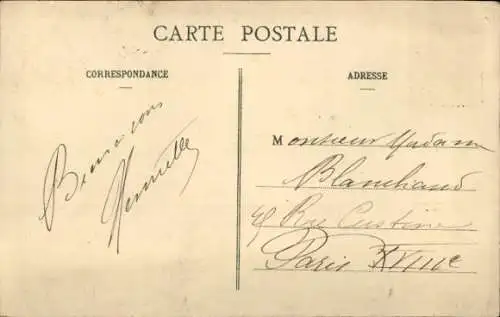 CARTE POSTALE
CORRESPONDANCE
ADRESSE
Monsieur Madame
Blanchaud
45 Rue Custine
Paris XVIIIe